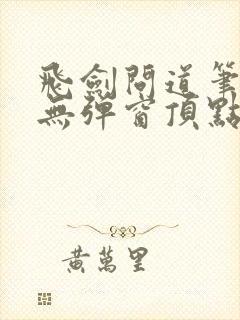 飛劍問道筆
無彈窗頂點
黃萬里